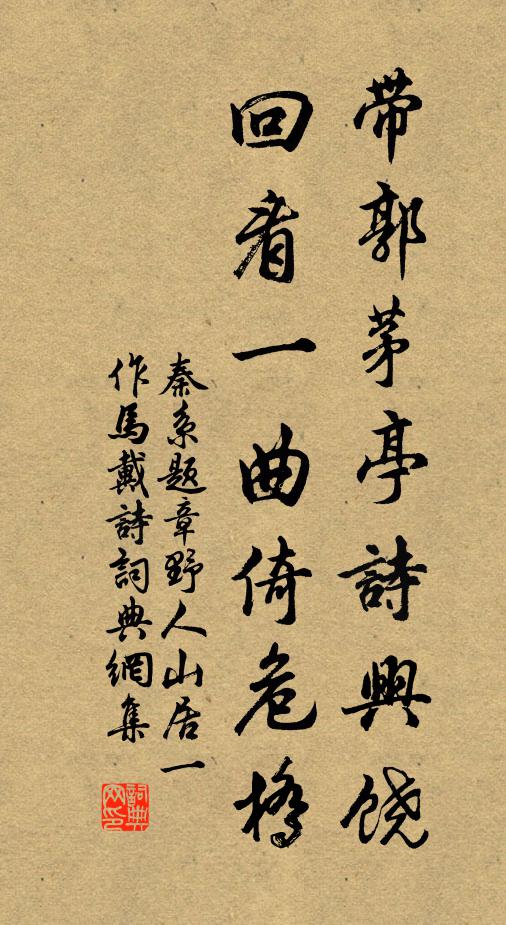 带郭茅亭詩興饶
回看一曲倚危橋
秦系题章野人山居一
作馬戴詩詞典網集
詞典网印